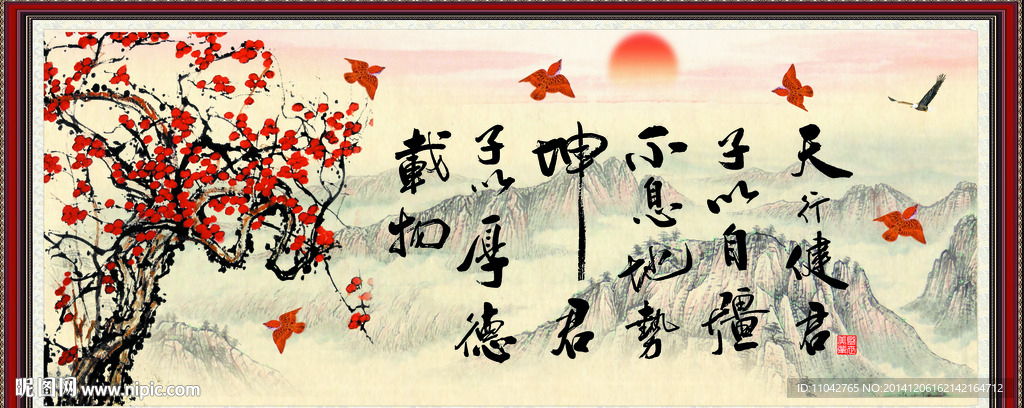 天行健君
子以自彊
不息地勢
坤君
子以厚德
載物
昵图网 www.nipic.com
ID:11042765 NO:20141206162142164712